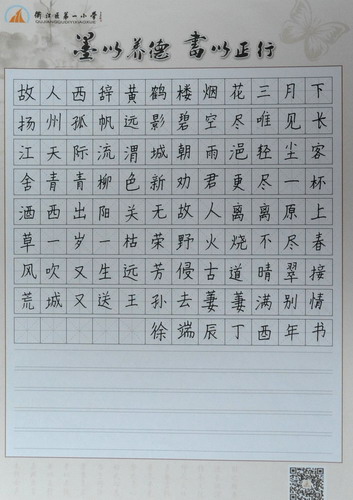 衢江区第一小学
墨以养德 書以正行
故人西辞黄鹤楼烟花三月下
扬州孤帆远影碧空尽唯见长
江天际流渭城朝雨浥轻尘客
舍青青柳色新劝君更尽一杯
酒西出阳关无故人离离原上
草一岁一枯荣野火烧不尽春
风吹又生远芳侵古道晴翠接
荒城又送王孙去萋萋满别情
徐端辰丁酉年书